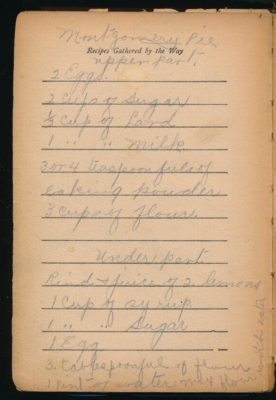 Montgomery Pie
Recipes Gathered by the Way
upper part.
2 Eggs.
2 Cups of Sugar
Cup of Lard
1 " " milk
3 or 4 teaspoonfuls of
baking powder
3 cups of flour
Under part
Rind & juice of 2 lemons
1 Cup of syrup
1 " " Sugar
1 Egg
3 tablespoonful of flour
1 Pint of water mix flour
with water